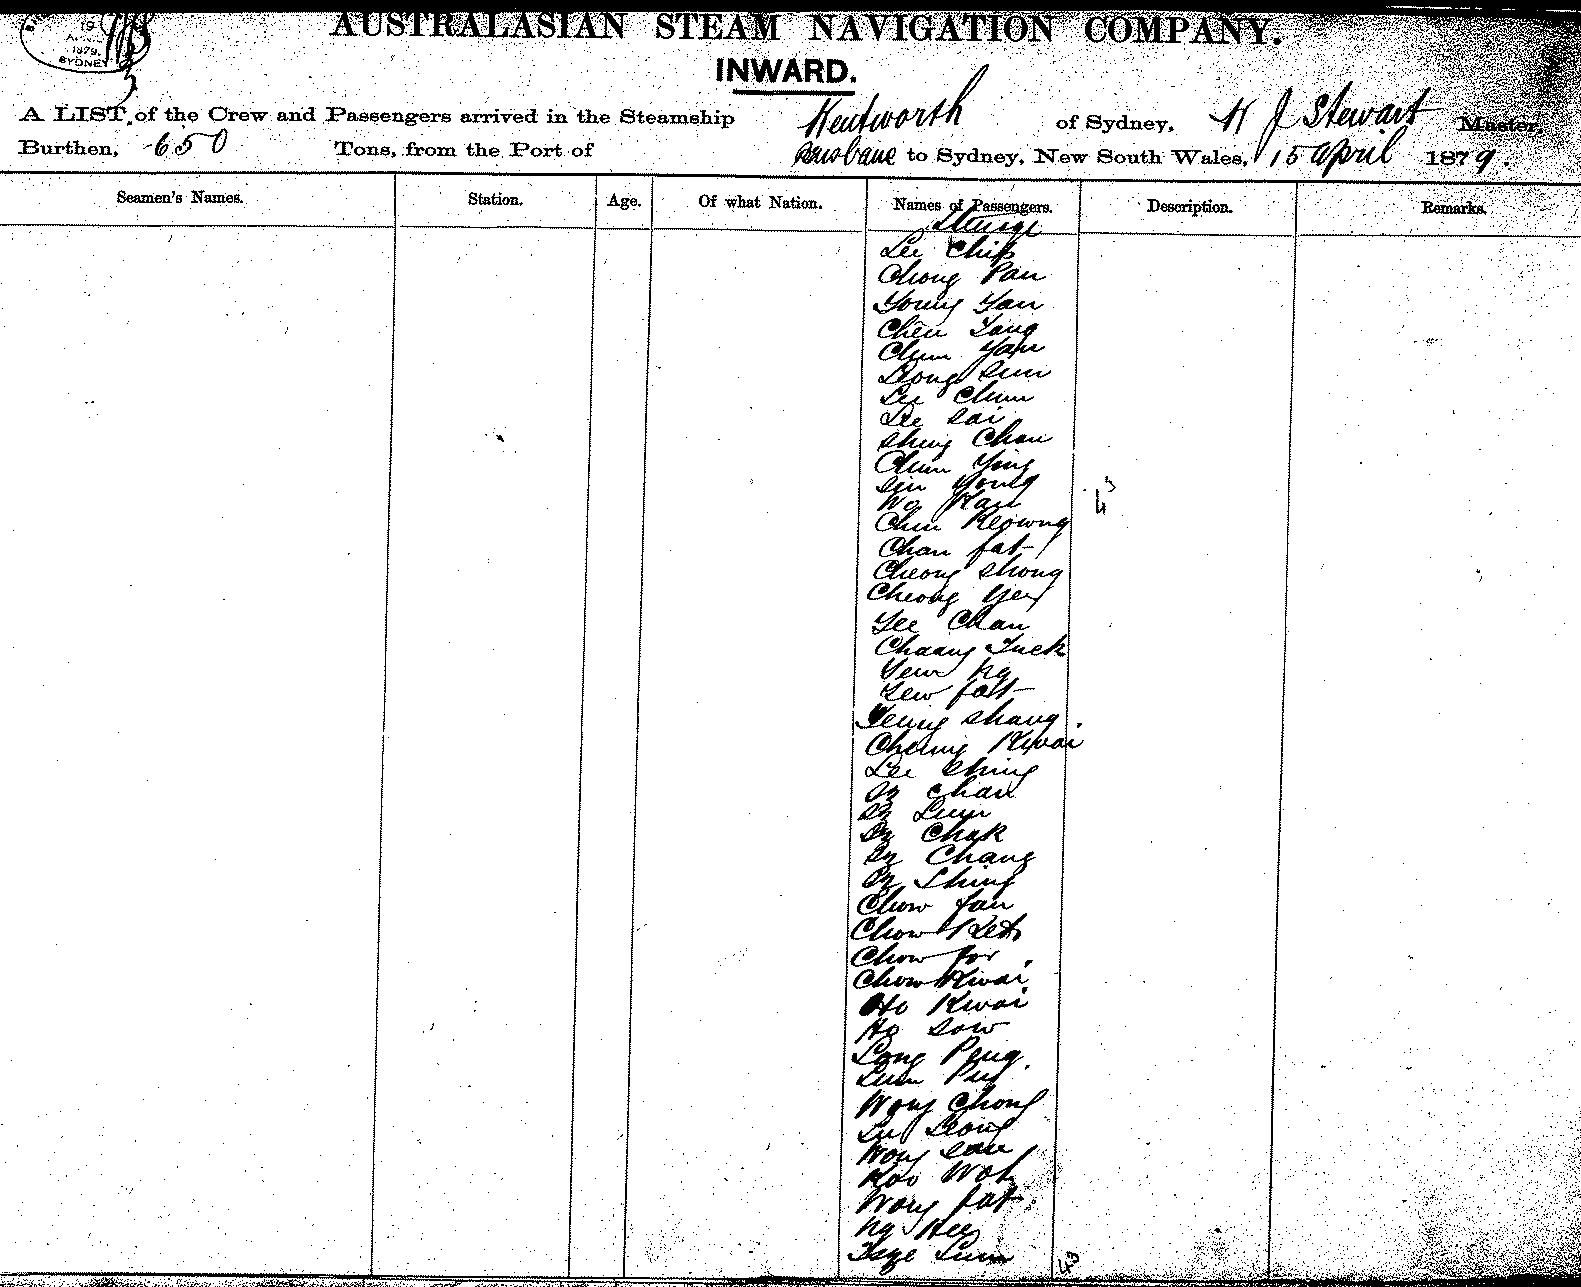 19
1879.
SYDNEY
AUSTRALASIAN STEAM NAVIGATION COMPANY.
INWARD.
A LIST of the Crew and Passengers arrived in the Steamship Wentworth of Sydney, H J Stewart Master,
Burthen, 650 Tons, from the Port of Brisbane to Sydney, New South Wales, 15 April 1879.
Seamen's Names. Station. Age. Of what Nation. Names of Passengers. Description. Remarks.
Steerage
Lee Chip
Chong Pan
Young Yan
Chen Tang
Chun Yan
Leong Sun
Lee Chun
Lee Sai
Shing Chan
Chun Ying
Sin Yong
Wo Kan
Chin Keowng
Chan fat
Cheong Shong
Cheong Yee
Yee Chan
Chaang Tuck
Yew Ng
Lew fatt
Yeung Shang.
Cheung Kwai
Lee Shing
Sy Chan
Sy Lum
Sy Chok
Sy Chang
Sy Shing
Chow fan
Chow
Chow for
Chow Kwai
Ho Kwai
Ho Sow
Long Peng
Lum Puy
Wong Chong
Lee Leong
Wong San
Koo Wah
Wong fat
Ng Hee
Lum
43